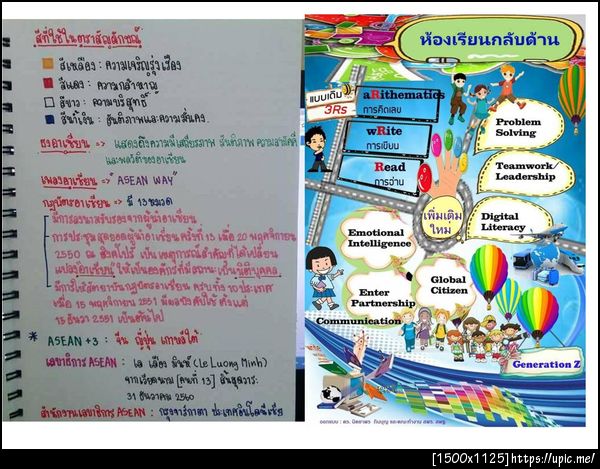 สีที่ใช้ในตราสัญลักษณ์
สีเหลือง : ความเจริญรุ่งเรือง
สีแดง : ความกล้าหาญ
สีขาว : ความบริสุทธิ์
สีน้ำเงิน : สันติภาพและความมั่นคง
ธงอาเซียน => แสดงถึงความมีเสถียรภาพ สันติภาพ ความสามัคคี
และพลวัตของอาเซียน
เพลงอาเซียน => "ASEAN WAY"
กฎบัตรอาเซียน => มี 13 หมวด
มีการลงนามรับรองจากผู้นำอาเซียน
การประชุมสุดยอดผู้นำอาเซียน ครั้งที่ 13 เมื่อ 20 พฤศจิกายน
2550 ณ สิงคโปร์ เป็นเหตุการณ์สำคัญที่ได้เปลี่ยน
แปลงอาเซียน ให้เป็นองค์กรที่มีสถานะเป็นนิติบุคคล
มีการให้สัตยาบันกฎบัตรอาเซียน ครบทั้ง 10 ประเทศ
เมื่อ 15 พฤศจิกายน 2551 มีผลบังคับใช้ ตั้งแต่
15 ธันวา 2551 เป็นต้นไป
* ASEAN +3 : จีน ญี่ปุ่น เกาหลีใต้
เลขาธิการ ASEAN : เล เลือง มินห์ (Le Luong Minh)
จากเวียดนาม [คนที่ 13] สิ้นสุดวาระ
31 ธันวาคม 2560
สำนักงานเลขาธิการ ASEAN : กรุงจาร์กาตา ประเทศอินโดนีเซีย
ห้องเรียนกลับด้าน
แบบเดิม
3Rs
aRithematics
การคิดเลข
wRite
การเขียน
Read
การอ่าน
Problem
Solving
Teamwork/
Leadership
เพิ่มเติม
ใหม่
Digital
Literacy
Emotional
Intelligence
Global
Citizen
Enter
Partnership
Communication
Generation Z
[1500x1125]https://upic.me/